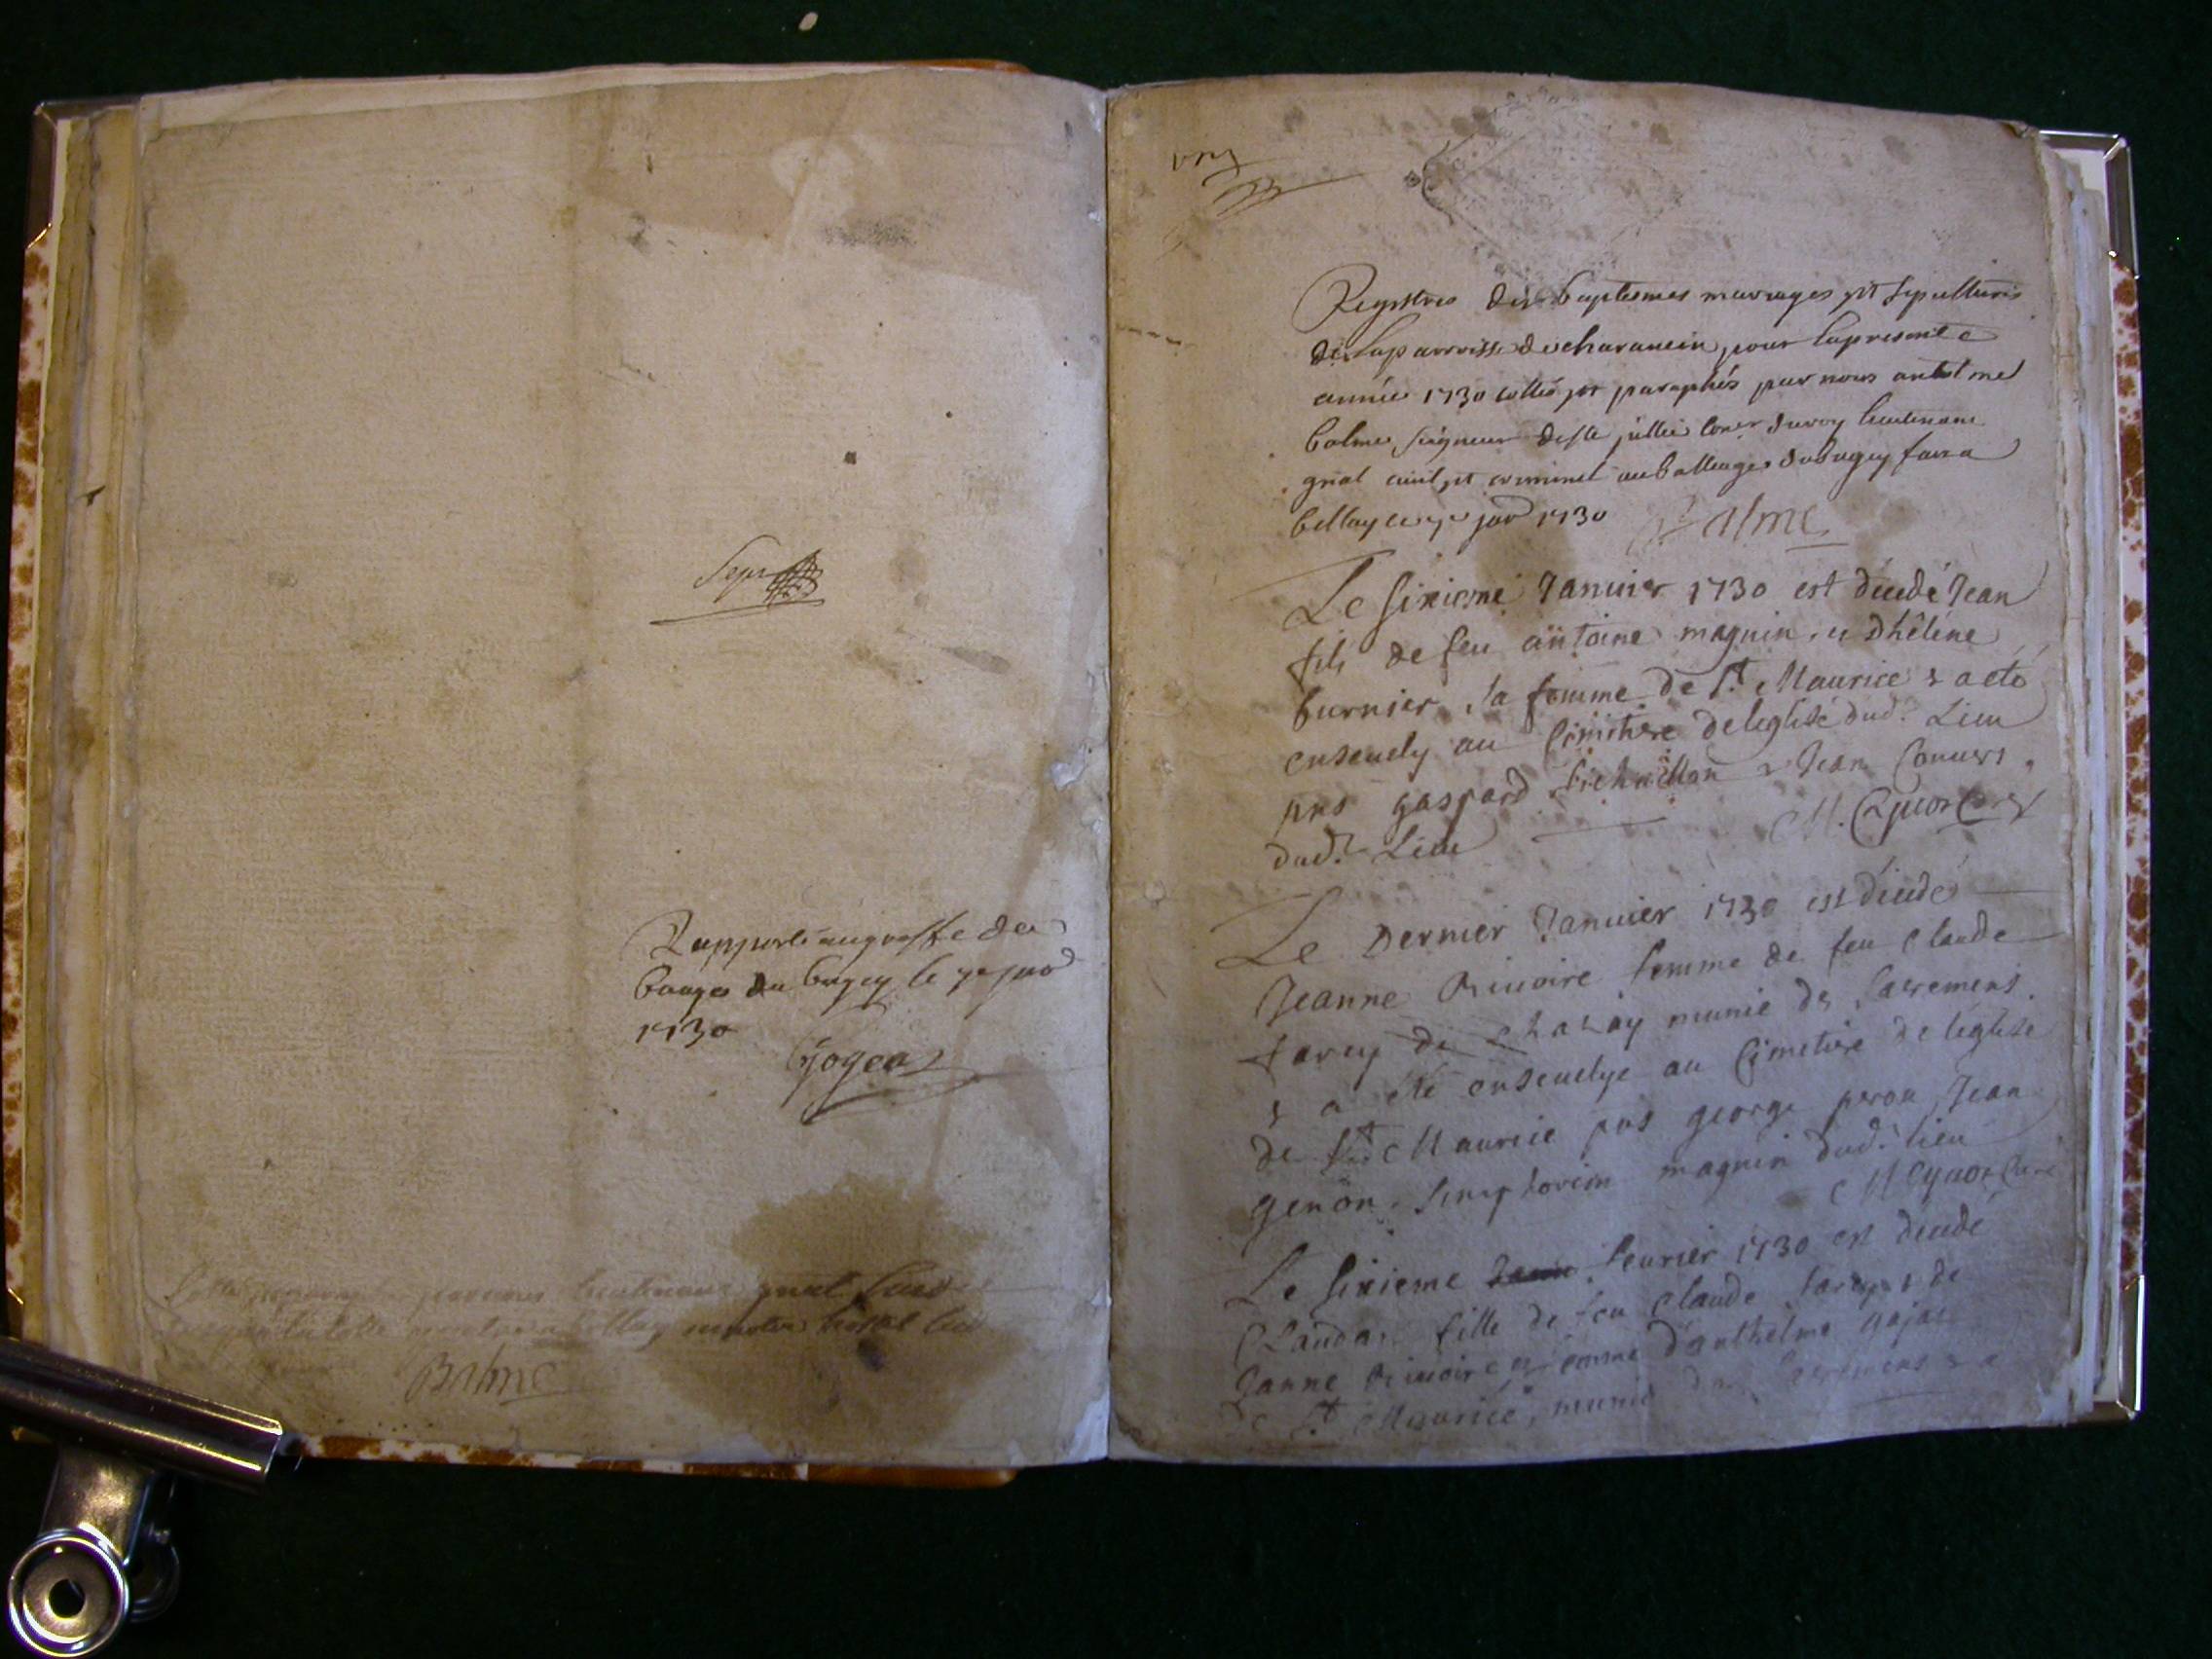 Sept
Rapporté au greffe du
bugey le
1730
lieutenant gnal
Balme
Registres des baptesmes mariages et sepultures
de la parroisse de charancin pour la presente
année 1730 cottés et paraphés par nous antelme
balme seigneur de ste jullie coner du roy lieutenant
gnal civil et criminel au balliage du bugey fait a
bellay ce janr 1730 Balme
Le sixieme Janvier 1730 est decedé Jean
fils de feu antoine magnin, et dhelene
burnier, sa femme de St Maurice & a eté
ensevely au cimitiere de leglise dud. Lieu
pns gaspard & Jean
dud. Lieu
Le Dernier Janvier 1730 est decedé
Jeanne Rivoire femme de feu Claude
farcy de munie des sacremens
& a eté ensevelye au cimetiere de leglise
de St Maurice pns george peron, Jean
genon, simphorein magnin dud. lieu
Curé
Le sixieme fevrier 1730 est decedé
Clauda, fille de feu Claude farcy & de
Janne Rivoire & femme danthelme gojat
de St Maurice, munie des sacremens & a